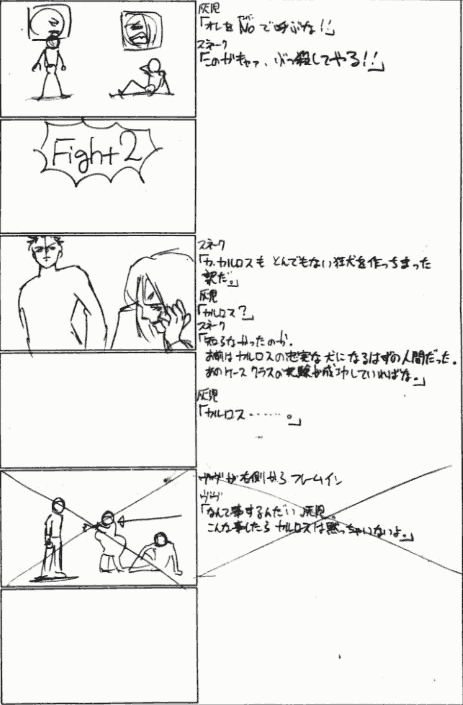 灰児
「オレをNoで呼ぶな!!」
スネーク
「このガキャァ、ぶっ殺してやる!!」
Fight 2
スネーク
「カ、カルロスも とんでもない狂犬を作っちまった
訳だ。」
灰児
「カルロス?」
スネーク
「知らなかったのか。
お前は カルロスの忠実な犬になるはずの人間だった。
あのケース クラスの実験が成功していればな。」
灰児
「カルロス……。」
が右側から フレームイン
「なんて事するんだい 灰児
こんな事したら カルロスは黙っちゃいないよ。」